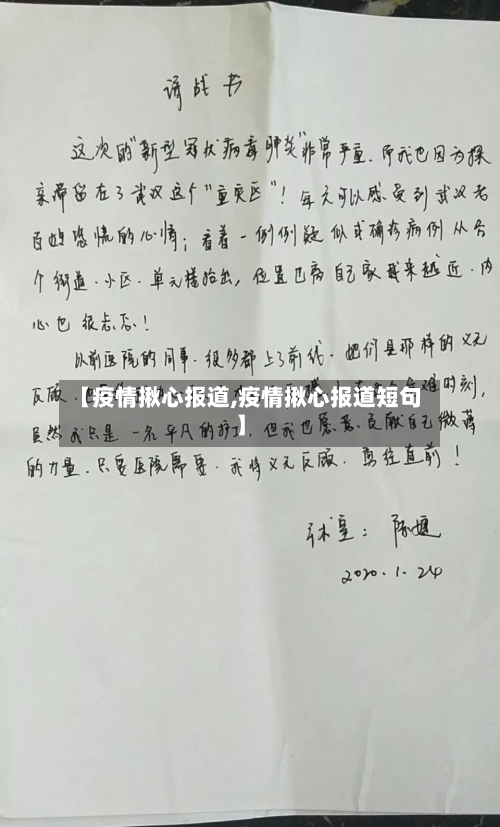 请战书
这次的"新型冠状病毒肺炎"非常严重.而我也因为探
亲滞留在了武汉这个"重灾区"！每天可以感受到武汉老
百姓恐慌的心情；看着一例例疑似或确诊病例从各
个街道.小区.单元楼抬出，位置也离自己家越来越近.内
心也很忐忑！
以前医院的同事.很多都上了前线.她们是那样的义无
反顾.
【疫情揪心报道,疫情揪心报道短句
】
难时刻,
虽然我只是一名平凡的护工,但我也愿意贡献自己微薄
的力量.只要医院需要.我将义无反顾.勇往直前！
2020.1.24